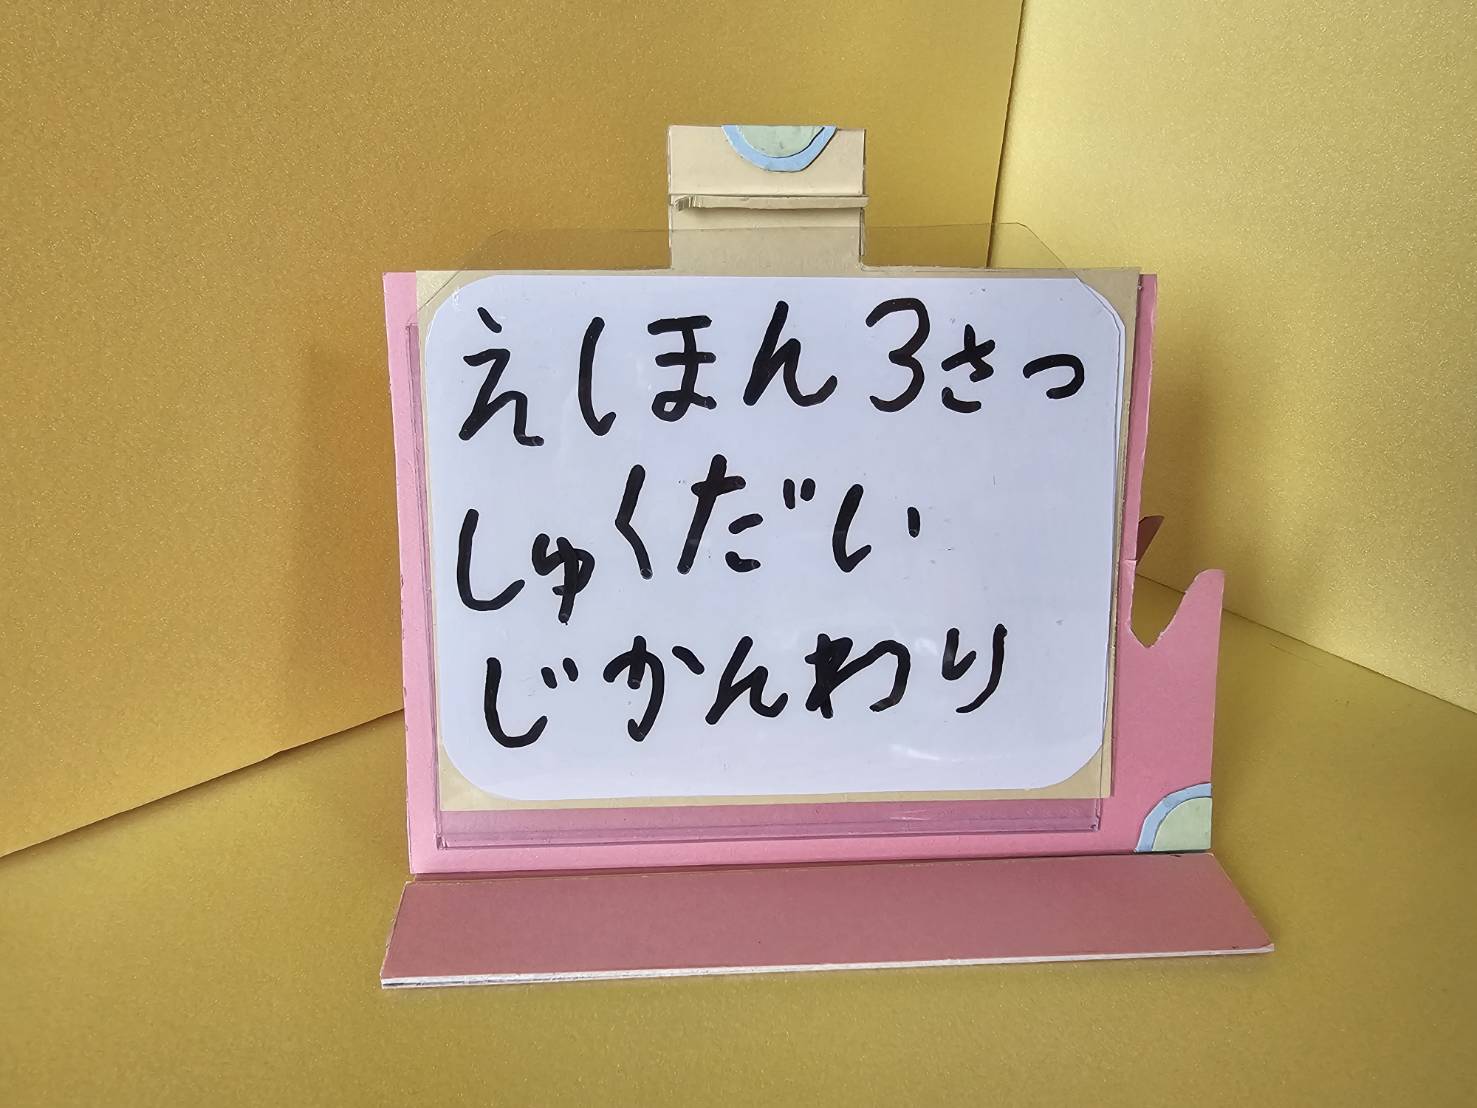 えほん3さつ
しゅくだい
じかんわり